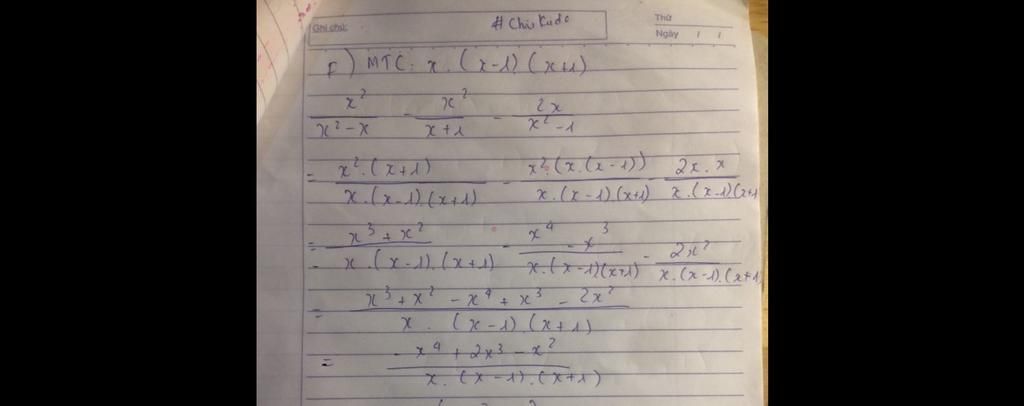 Ghi chú: # ChisKudo Thứ
Ngày / /
F) MTC: x . (x-1) (x+1)
x²/(x²-x) - x²/(x+1) - 2x/(x²-1)
= x².(x+1)/(x.(x-1).(x+1)) - x².(x.(x-1))/(x.(x-1)(x+1)) - 2x.x/(x.(x-1)(x+1
= x³+x²/(x.(x-1).(x+1)) - x⁴-x³/(x.(x-1)(x+1)) - 2x²/(x.(x-1).(x+1)
= x³+x²-x⁴+x³-2x²/(x.(x-1)(x+1))
= -x⁴+2x³-x²/(x.(x-1).(x+1))